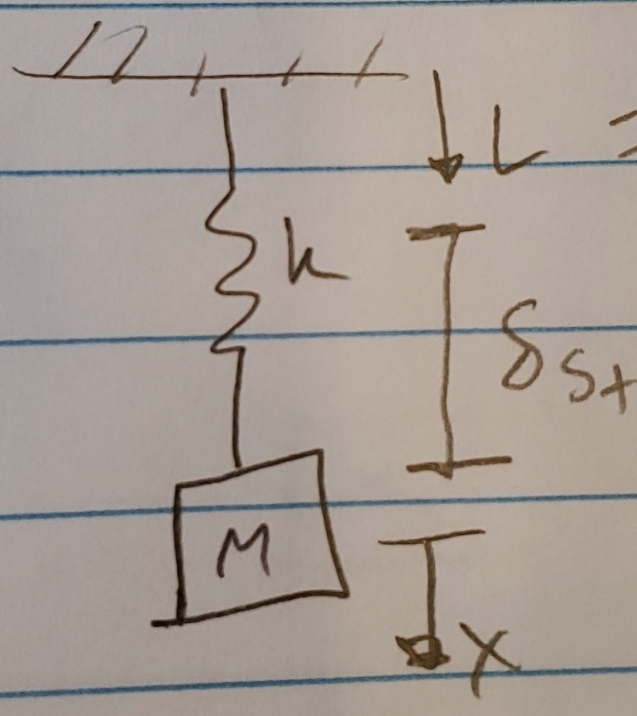 L =
k
δst
M
x